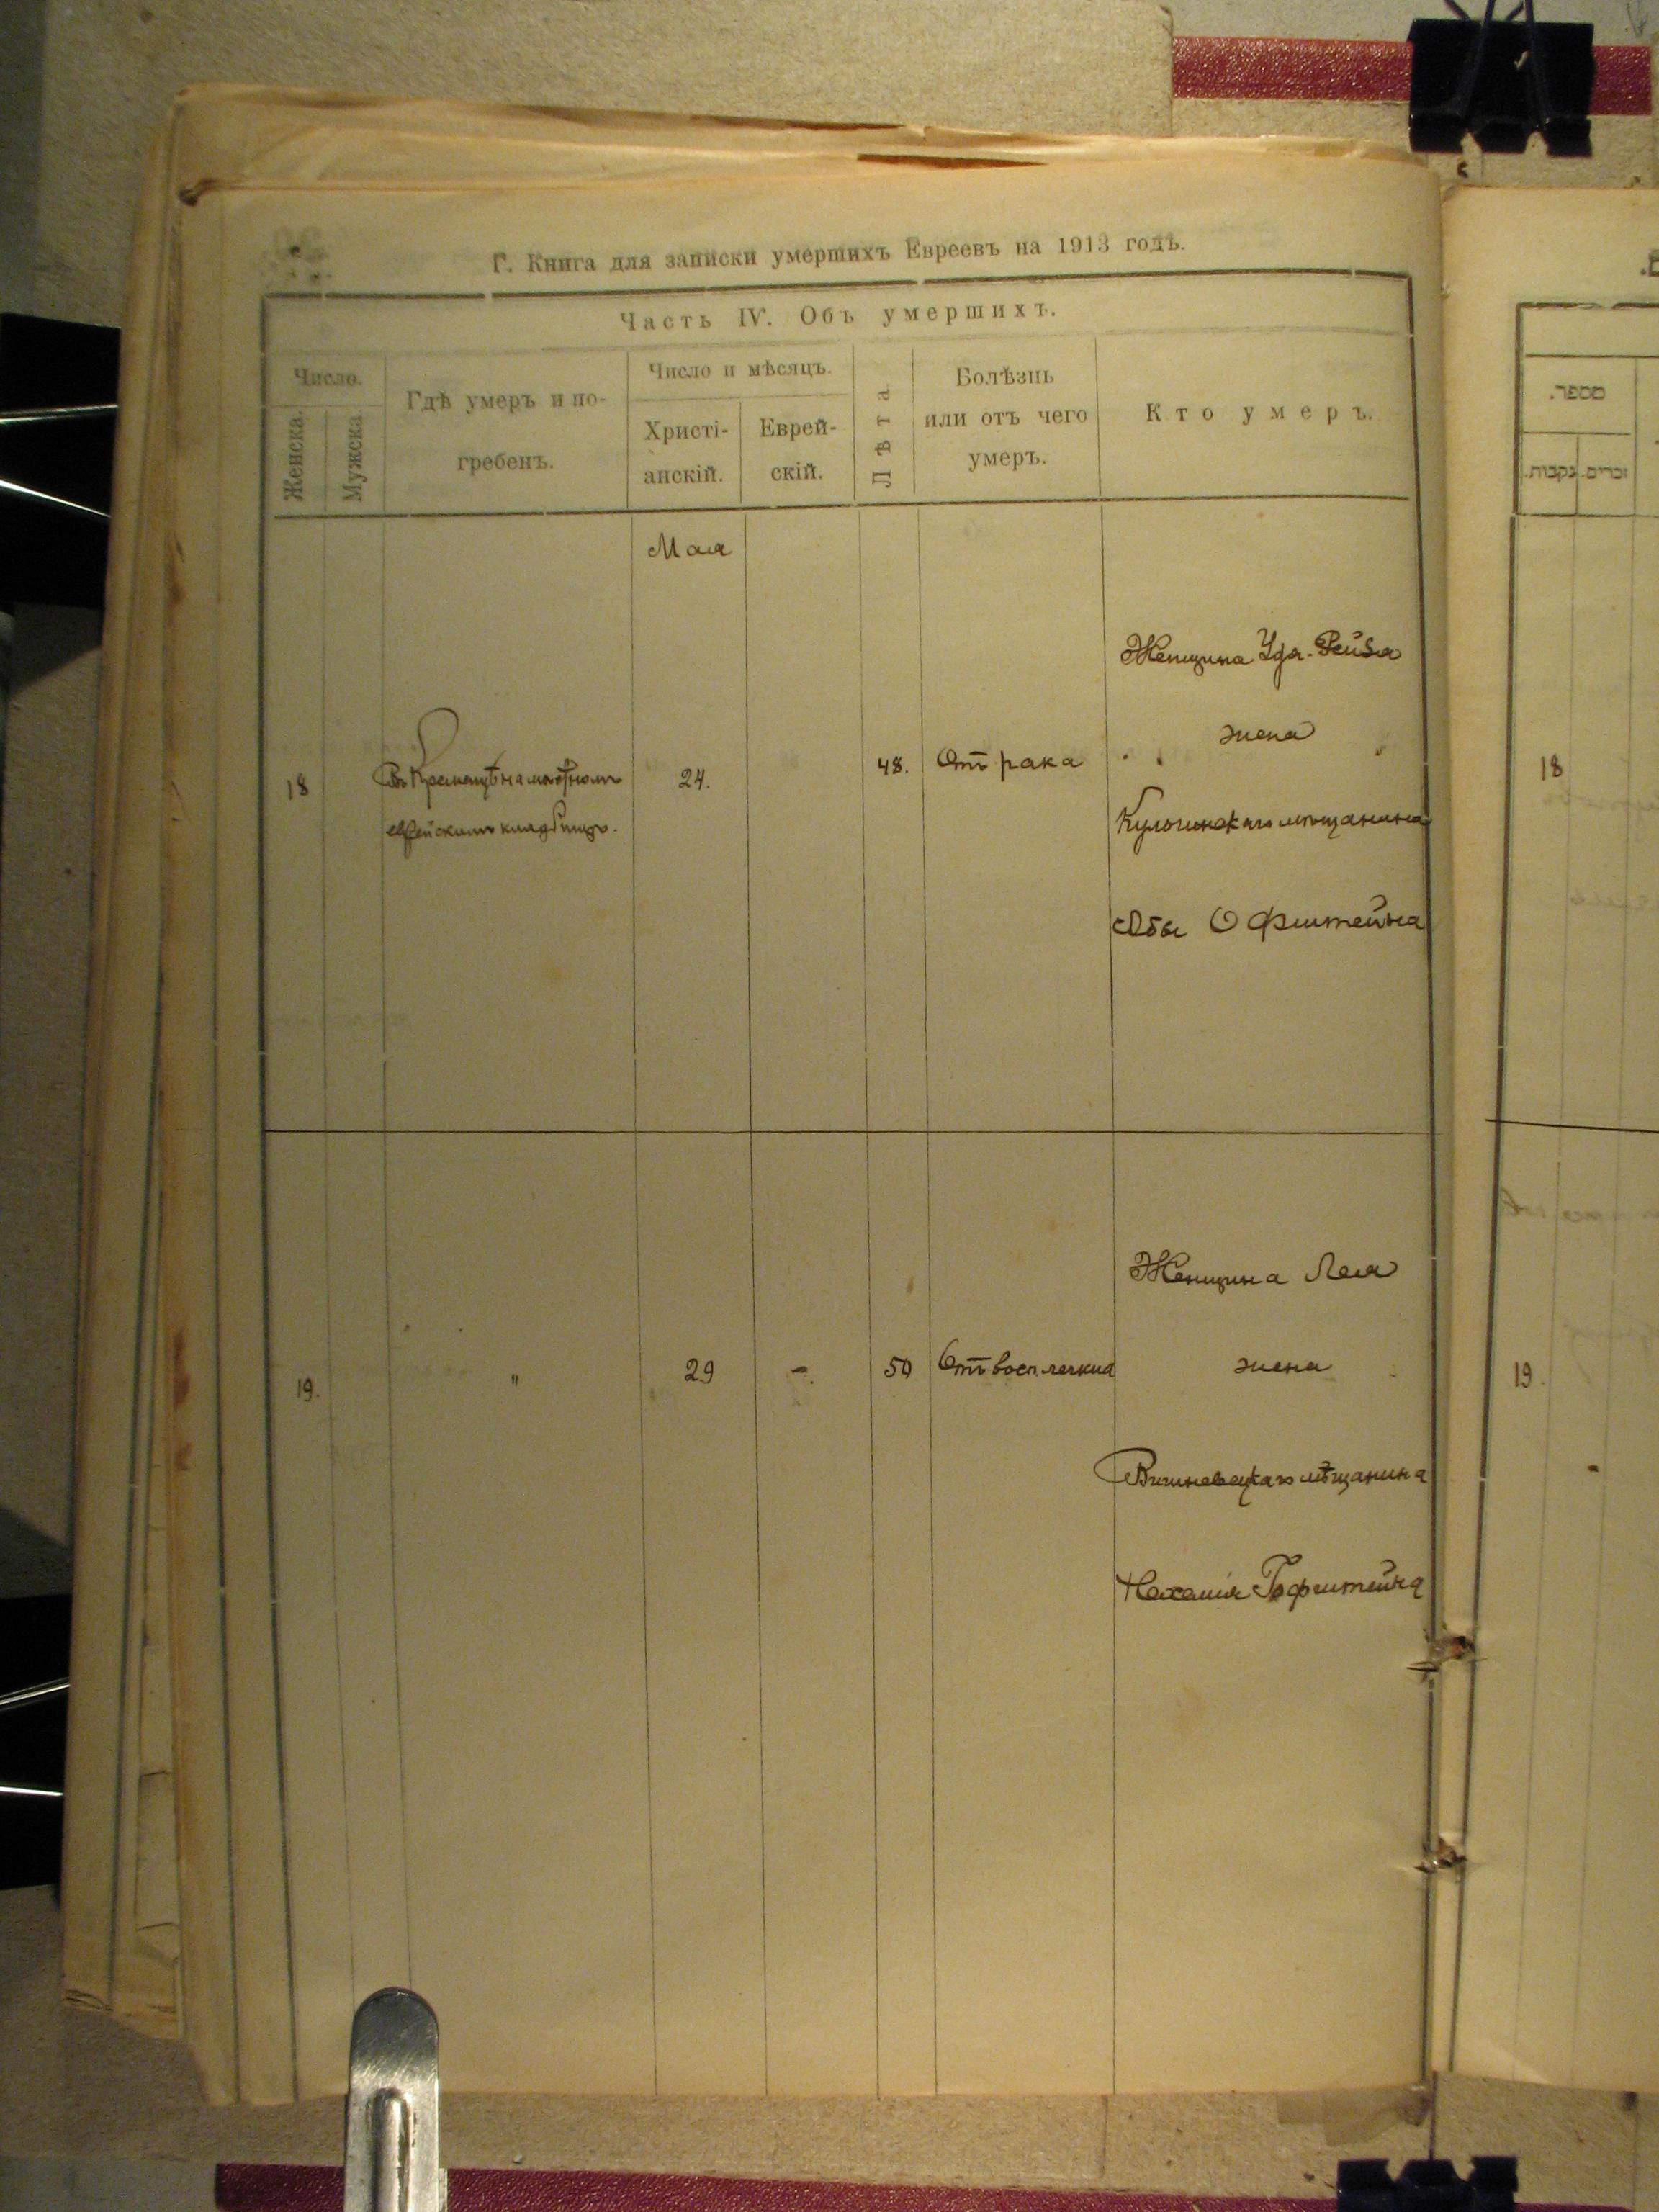 Г. Книга для записки умершихъ Евреевъ на 1913 годъ.
Часть IV. Объ умершихъ.
Число.
Женска.
Мужска
Гдѣ умеръ и по-
гребенъ.
Число и мѣсяцъ.
Христі-
анскій.
Еврей-
скій.
Лѣта
Болѣзнь
или отъ чего
умеръ.
Кто умеръ.
Мая
18
Въ Кременцѣ на мѣстномъ
еврейскомъ кладбищѣ.
24.
48.
Отъ рака
Женщина Удя-Рейзя
жена
Кульчинскаго мѣщанина
Абы Офштейна
19.
"
29
-.
50
Отъ восп. легкихъ
Женщина Лея
жена
Вишневецкаго мѣщанина
Нахамія Гофштейна
מספר.
זכרים.
נקבות.
18
19.